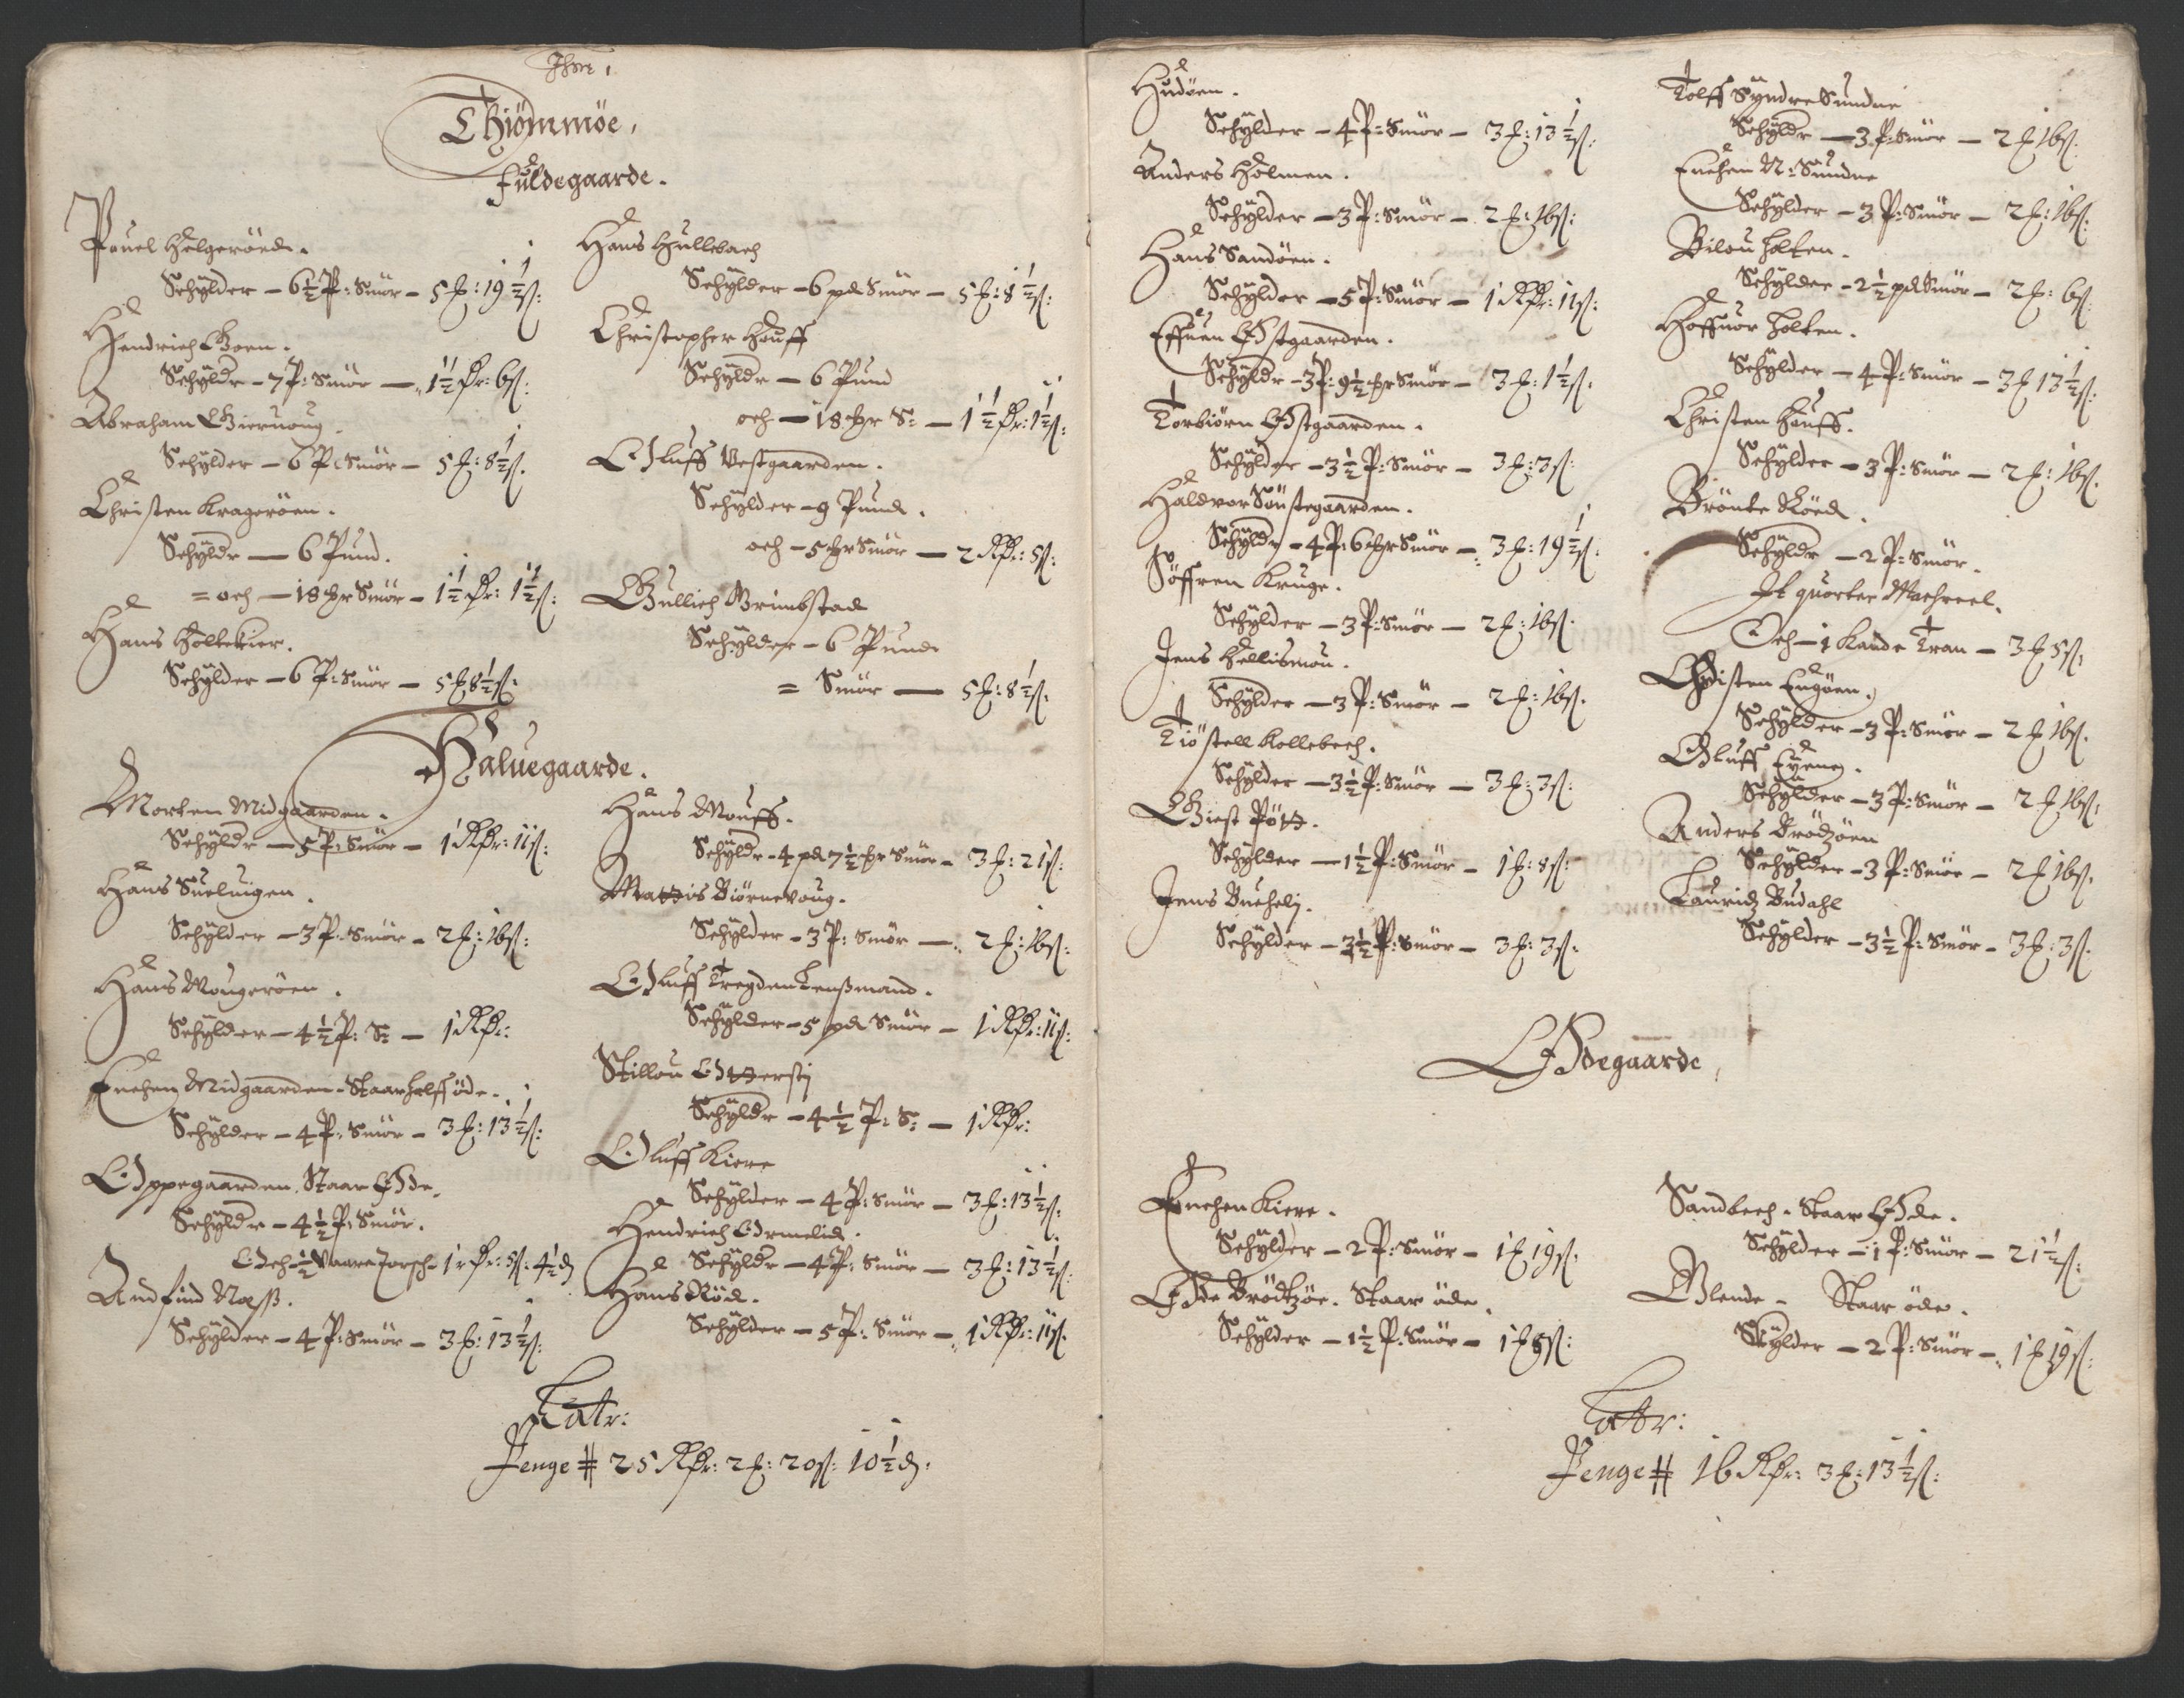 Thiømmøe,
Fuldegaarde.
Pouel Helgerøed.
Schylder – 6½ P: Smør – 5 ʒ: 19½ ß:
Hendrich Goen.
Schyldr – 7 P: Smør – 1½ Dr: 6 ß:
Abraham
Schylder – 6 P: Smør – 5 ʒ: 8½ ß.
Christen Kragerøen.
Schyldr – 6 Pund.
= och – 18 Smør – 1½ Dr: 1½ ß:
Hans Holtekier.
Schylder – 6 P: Smør – 5 ʒ 8½ ß.
Hans Hullebach
Schylder – 6 pd Smør – 5 ʒ: 8½ ß:
Christopher Houff
Schyldr – 6 Pund
och – 18 S: – 1½ Dr: 1½ ß:
Oluff Vestgaarden.
Schylder – 9 Pund.
och – 5 Smør – 2 Rdr: 5 ß:
Gullich Grimbstad
Schylder – 6 Pund
= Smør – 5 ʒ: 8½ ß.
Haluegaarde.
Morten Midgaarden.
Schyldr – 5 P: Smør – 1 Rdr: 11 ß:
Hans Sueluigen.
Schylder – 3 P: Smør – 2 ʒ: 16 ß:
Hans Mougerøen.
Schylder – 4½ P: S: – 1 Rdr:
Enchen Midgaarden – Staar halff øde.
Schylder – 4 P: Smør – 3 ʒ: 13½ ß:
Oppegaarden Staar Øde.
Schyldr – 4½ P: Smør.
Och ½ Vaare Torsch 1 rdr: 5 ß: 4½ d
Andfind Næss.
Schylder – 4 P: Smør – 3 ʒ: 13½ ß:
Hans Mouff.
Schyldr – 4 pd 7½ Smør – 3 ʒ: 21 ß:
Mattis Biørnevoug.
Schylder – 3 P: Smør – 2 ʒ: 16 ß:
Oluff Tregden Lenßmand.
Schylder – 5 pd Smør – 1 Rdr: 11 ß:
Stillou
Schyldr – 4½ P: S: – 1 Rdr:
Oluff Kiere
Schylder – 4 P: Smør – 3 ʒ: 13½ ß:
Hendrich Ormelid.
Schyldr – 4 P: Smør – 3 ʒ: 13½ ß:
Hans Røed.
Schylder – 5 P: Smør – 1 Rdr: 11 ß.
Latr:
Penge # 25 Rdr: 2 ʒ: 20 ß: 10½ d.
Hudøen.
Schylder – 4 P: Smør – 3 ʒ: 13½ ß:
Anders Holmen.
Schylder – 3 P: Smør – 2 ʒ: 16 ß:
Hans Sandøen.
Schylder – 5 P: Smør – 1 Rdr: 11 ß:
Effuen Østgaarden.
Schyldr – 3 P: 9½ Smør – 3 ʒ: 1½ ß.
Torbiørn Østgaarden.
Schylder – 3½ P: Smør – 3 ʒ: 3 ß:
Haldvor Sønstegaarden.
Schyldr – 4 P: 6 Smør – 3 ʒ: 19½ ß:
Søffren Kruge.
Schylder – 3 P: Smør – 2 ʒ: 16 ß.
Jens Hellismou.
Schylder – 3 P: Smør – 2 ʒ: 16 ß.
Tiøstell Kollebech.
Schylder – 3½ P: Smør – 3 ʒ: 3 ß:
Giest
Schylder – 1½ P: Smør – 1 ʒ: 8 ß:
Jens Buchelj.
Schylder – 3½ P: Smør – 3 ʒ: 3 ß.
Tolff Syndre Sundne
Schyldr – 3 P: Smør – 2 ʒ 16 ß.
Enchen N: Sundne
Schylder – 3 P: Smør – 2 ʒ: 16 ß.
Bilou Holten.
Schylder – 2½ pd Smør – 2 ʒ: 6 ß.
Hoffuor Holten.
Schylder – 4 P: Smør – 3 ʒ 13½ ß.
Christen Houff.
Schylder – 3 P: Smør – 2 ʒ: 16 ß.
Brønte Røed.
Schyldr – 2 P: Smør.
It quorter Machreel.
Och – 1 Kande Tran – 3 ʒ 5 ß.
Christen Engøen.
Schylder – 3 P: Smør – 2 ʒ 16 ß.
Oluff Eyene.
Schylder – 3 P: Smør – 2 ʒ 16 ß.
Anders Brødzøen
Schylder – 3 P: Smør – 2 ʒ 16 ß.
Lauridz Budahl
Schylder – 3½ P: Smør – 3 ʒ: 3 ß.
Ødegaarde,
Enchen Kiere.
Schylder – 2 P: Smør – 1 ʒ 19 ß.
Øde Brødtzøe. Staar øde.
Schylder – 1½ P: Smør – 1 ʒ 8 ß:
Sandbech. Staar Øde.
Schylder – 1 P: Smør – 21½ ß:
Glende – Staar øde.
Schylder – 2 P: Smør – 1 ʒ 19 ß:
Latr:
Penge # 16 Rdr: 3 ʒ: 13½ ß: